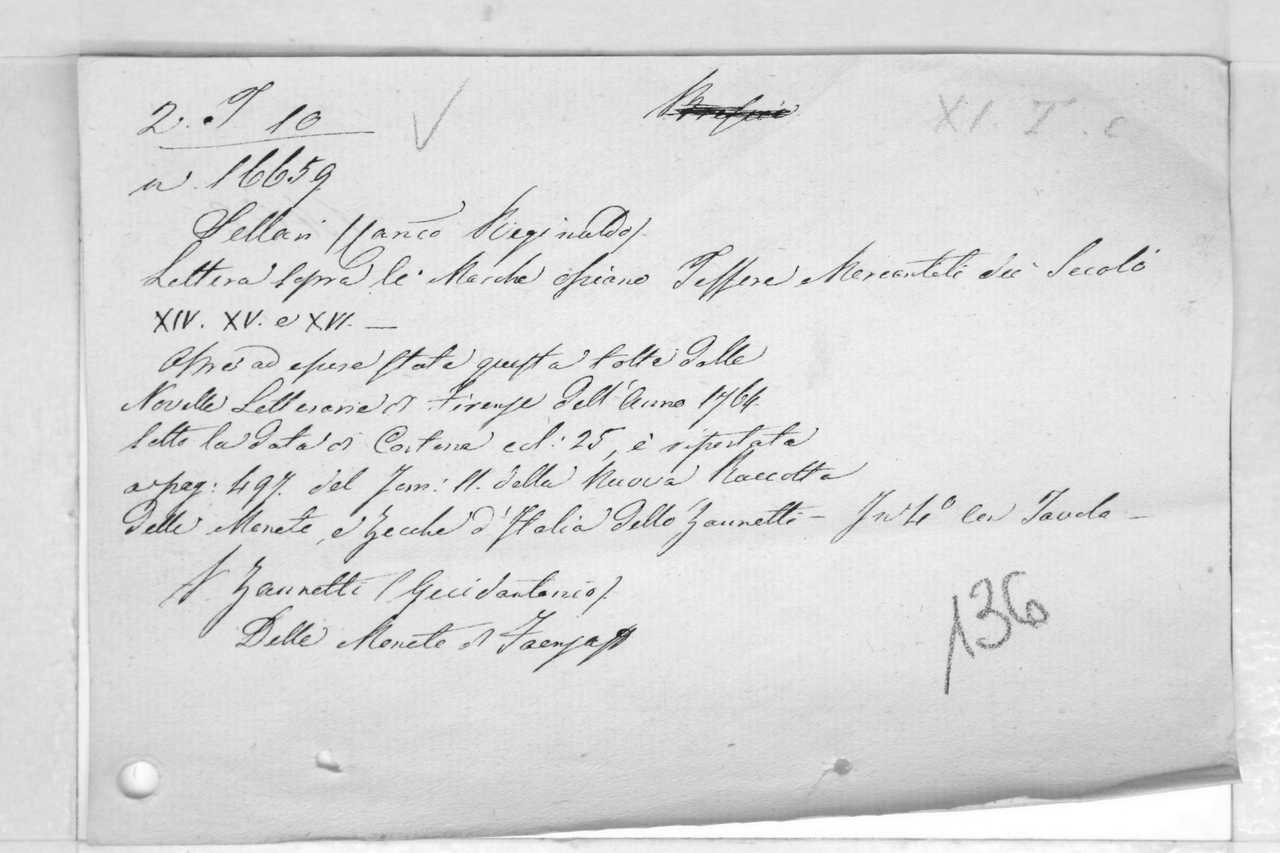 2. T 10
XI. T. c
n. 16659
Sellari (Marco Reginaldo).
Lettera sopra le Marche ossiano Tessere Mercantili dei Secoli
XIV. XV. e XVI. —
Oltre ad essere stata questa tolta dalle
Novelle Letterarie di Firenze dell'Anno 1764
sotto la data di Cortona col: 25, è riportata
a pag: 497. del Tom: II. della Nuova Raccolta
delle Monete, e Zecche d'Italia dello Zannetti — In 4° con Tavola —
V. Zannetti (Guidantonio).
Delle Monete di Faenza
136